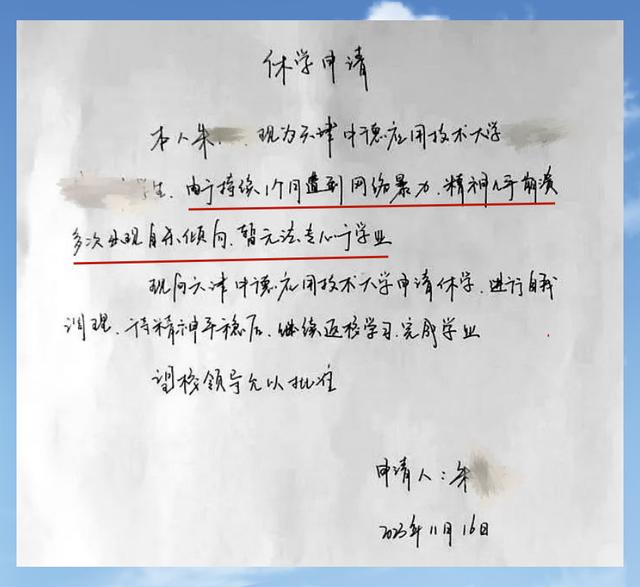 休学申请
本人朱 现为天津中德应用技术大学
生. 由于持续1个月遭到网络暴力,精神几乎崩溃
多次出现自杀倾向,暂无法专心于学业
现向天津中德应用技术大学申请休学,进行自我
调理,待精神平稳后,继续返校学习,完成学业
望校领导允以批准
申请人:朱
2023年11月16日